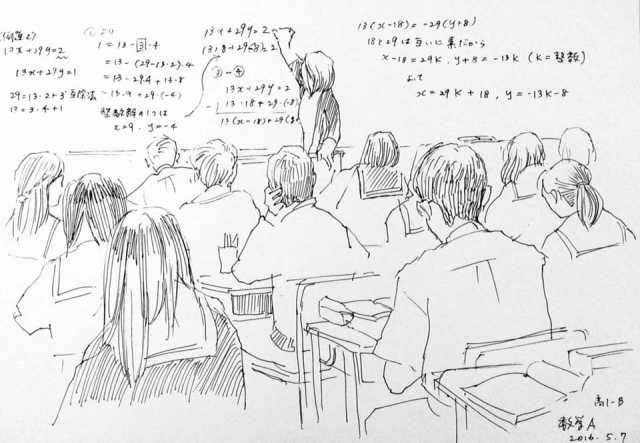 (例題2)
13x+29y=2
13x+29y=1
29=13・2+3 互除法
13=3・4+1
①より
1=13-3・4
=13-(29-13・2)・4
=13-29・4+13・8
=13・9+29・(-4)
整数解の1つは
x=9, y=-4
13x+29y=2
③-④
13x+29y=2
-)13・18+29・(-8)
13(x-18)+29(y+
13(x-18)=-29(y+8)
18と29は互いに素だから
x-18=29k, y+8=-13k (k=整数)
よって
x=29k+18, y=-13k-8
高1-B
数学A
2016.5.7